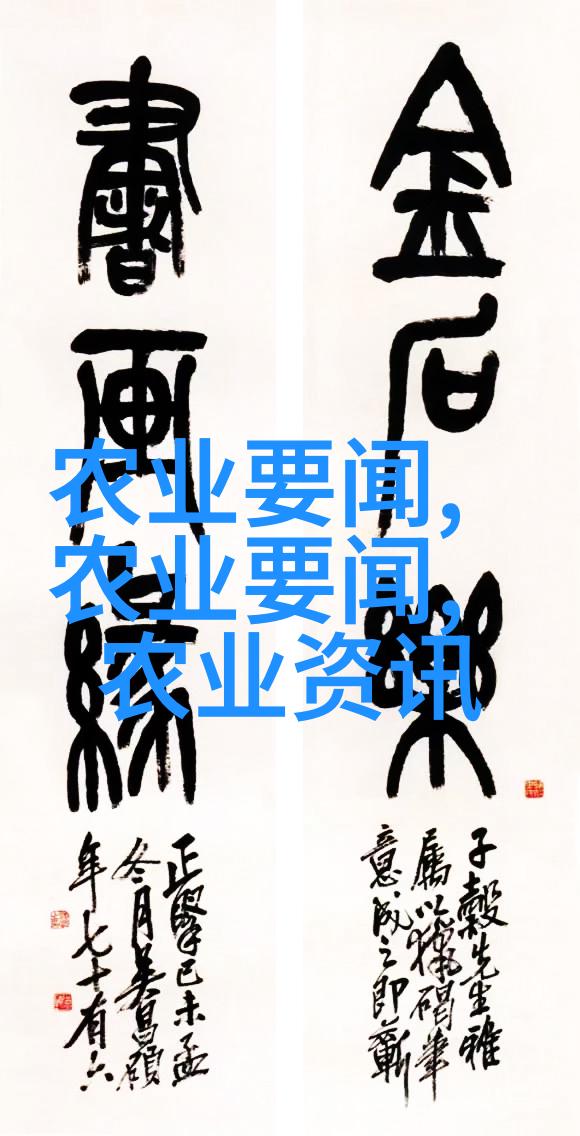 金石樂
子穀先生雅
屬以獵碣筆
意成之即蘄
書畫緣
正己未孟
冬月吴昌碩
年七十有六
农业要闻,
农业要闻,
农业资讯